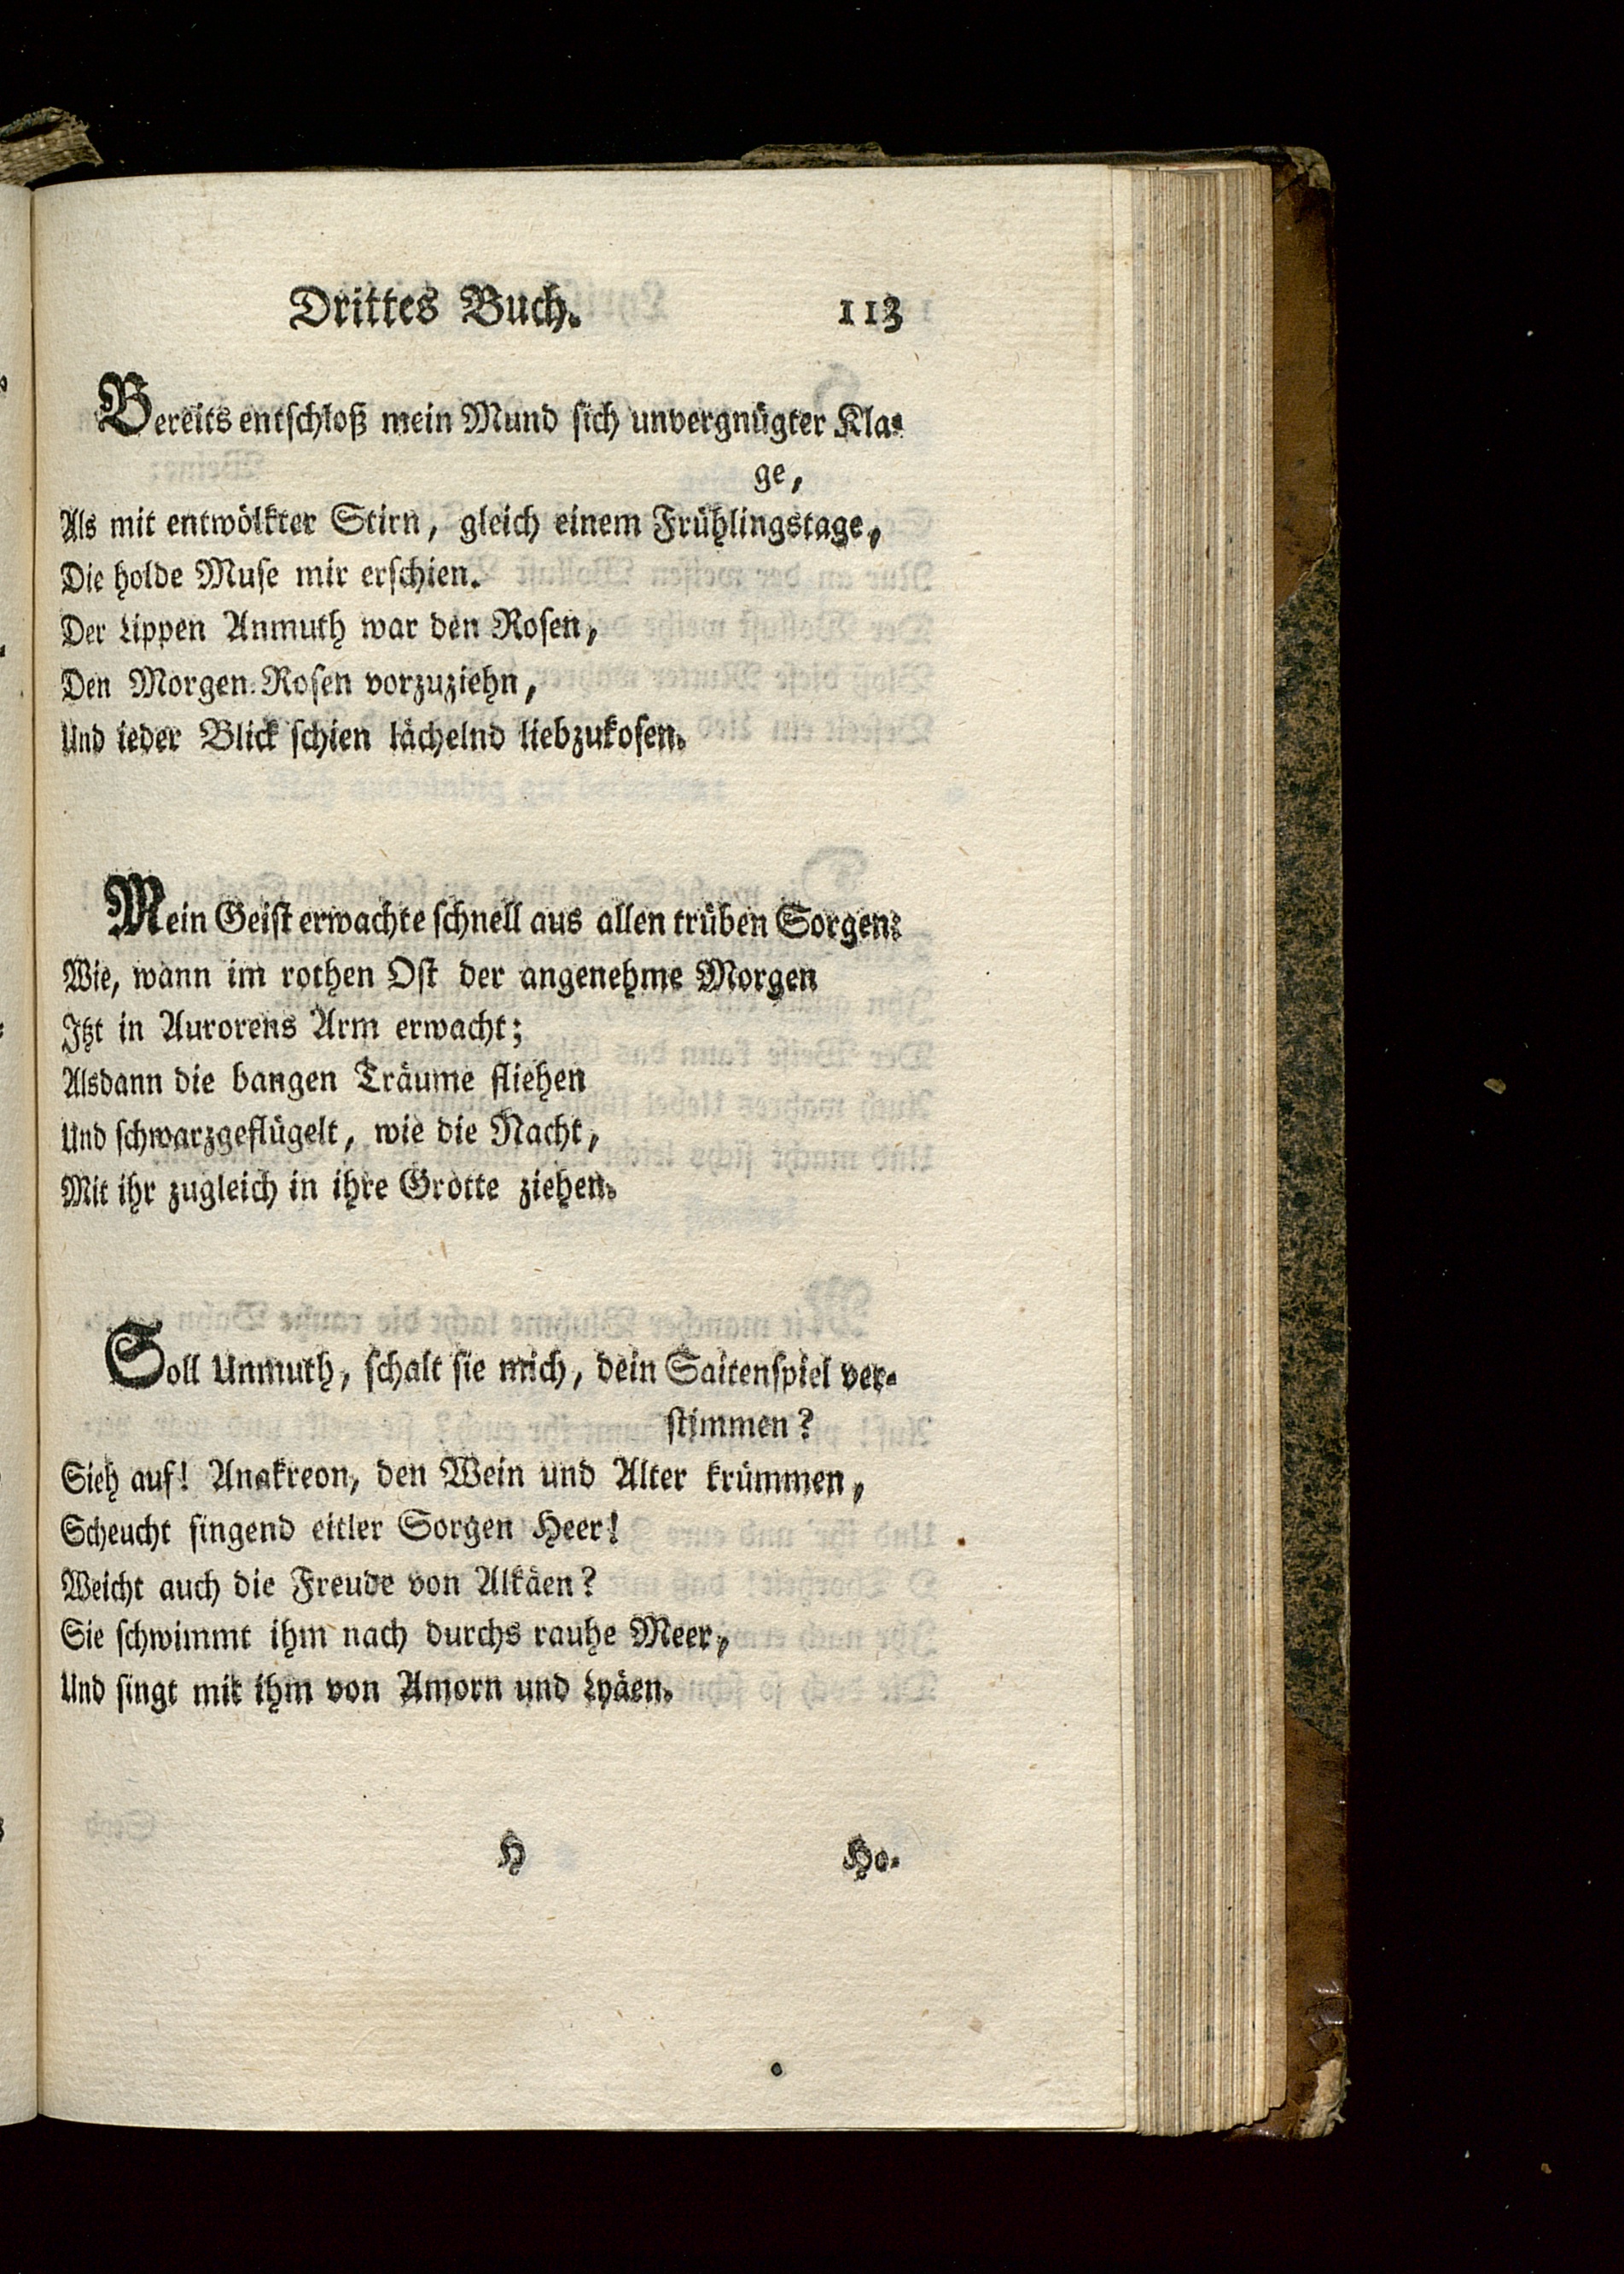 Drittes Buch. 113
Bereits entſchloß mein Mund ſich unvergnügter Kla-
ge,
Als mit entwölkter Stirn, gleich einem Frühlingstage,
Die holde Muſe mir erſchien.
Der Lippen Anmuth war den Roſen,
Den Morgen-Roſen vorzuziehn,
Und ieder Blick ſchien lächelnd liebzukoſen.
Mein Geiſt erwachte ſchnell aus allen trüben Sorgen:
Wie, wann im rothen Oſt der angenehme Morgen
Itzt in Aurorens Arm erwacht;
Alsdann die bangen Träume fliehen
Und ſchwarzgeflügelt, wie die Nacht,
Mit ihr zugleich in ihre Grotte ziehen.
Soll Unmuth, ſchalt ſie mich, dein Saitenſpiel ver-
ſtimmen?
Sieh auf! Anakreon, den Wein und Alter krümmen,
Scheucht ſingend eitler Sorgen Heer!
Weicht auch die Freude von Alkäen?
Sie ſchwimmt ihm nach durchs rauhe Meer,
Und ſingt mit ihm von Amorn und Lyäen.
H Ho-